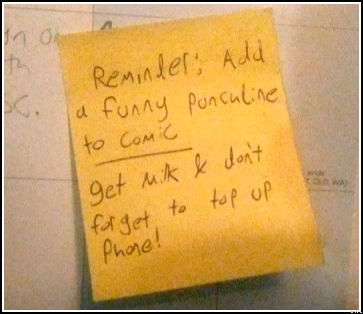 Reminder: Add
a funny punchline
to comic
get milk & don't
forget to top up
Phone!